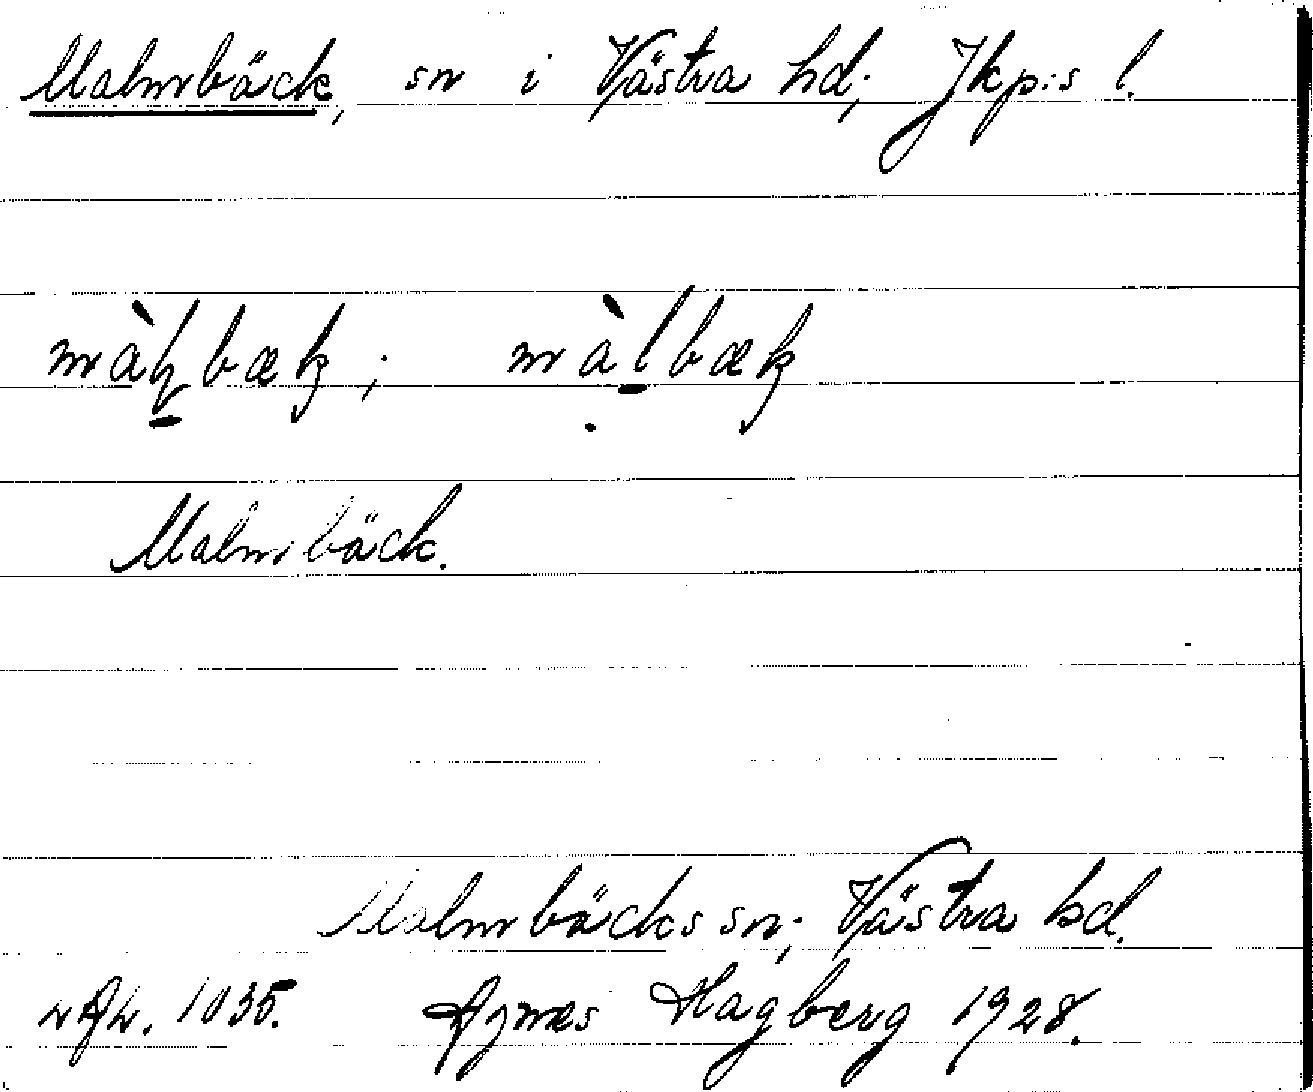 Malmbäck, sn i Västra hd; Jkp:s l.
màl̠bæk; màl̠bæk
Malmbäck.
Malmbäcks sn; Västra hd.
1035. Agnes Hagberg 1928.